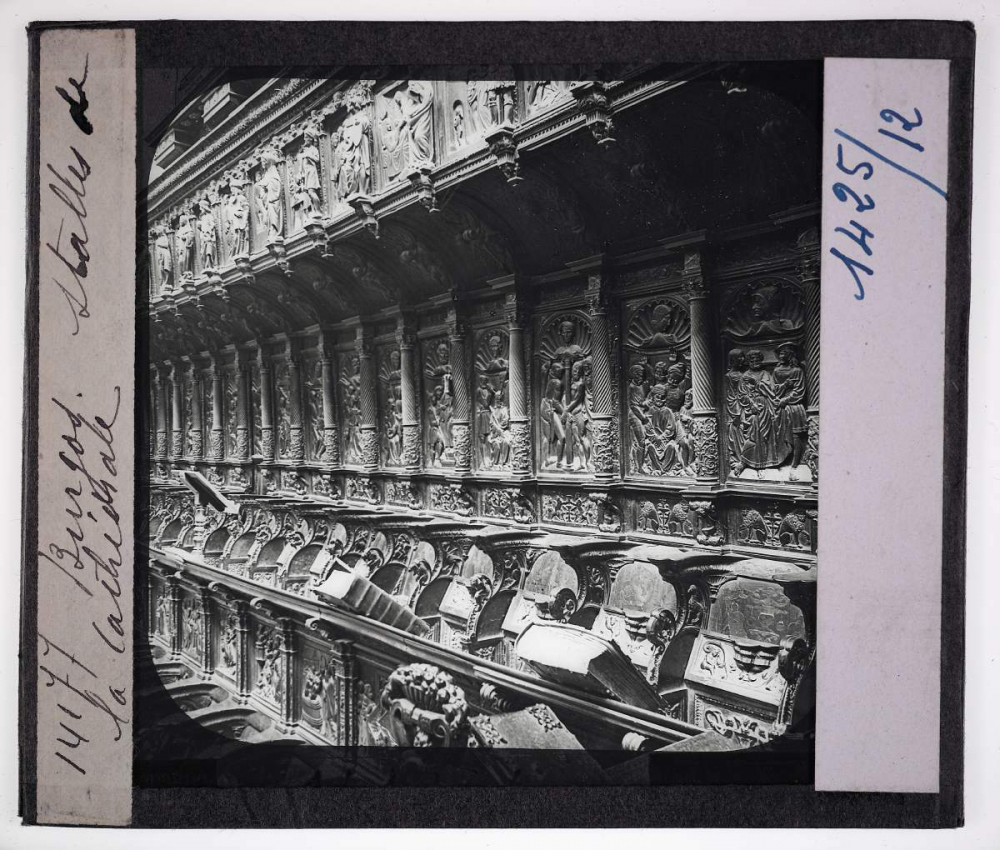 1417 Burgos. stalles de
la cathédrale
1425/12